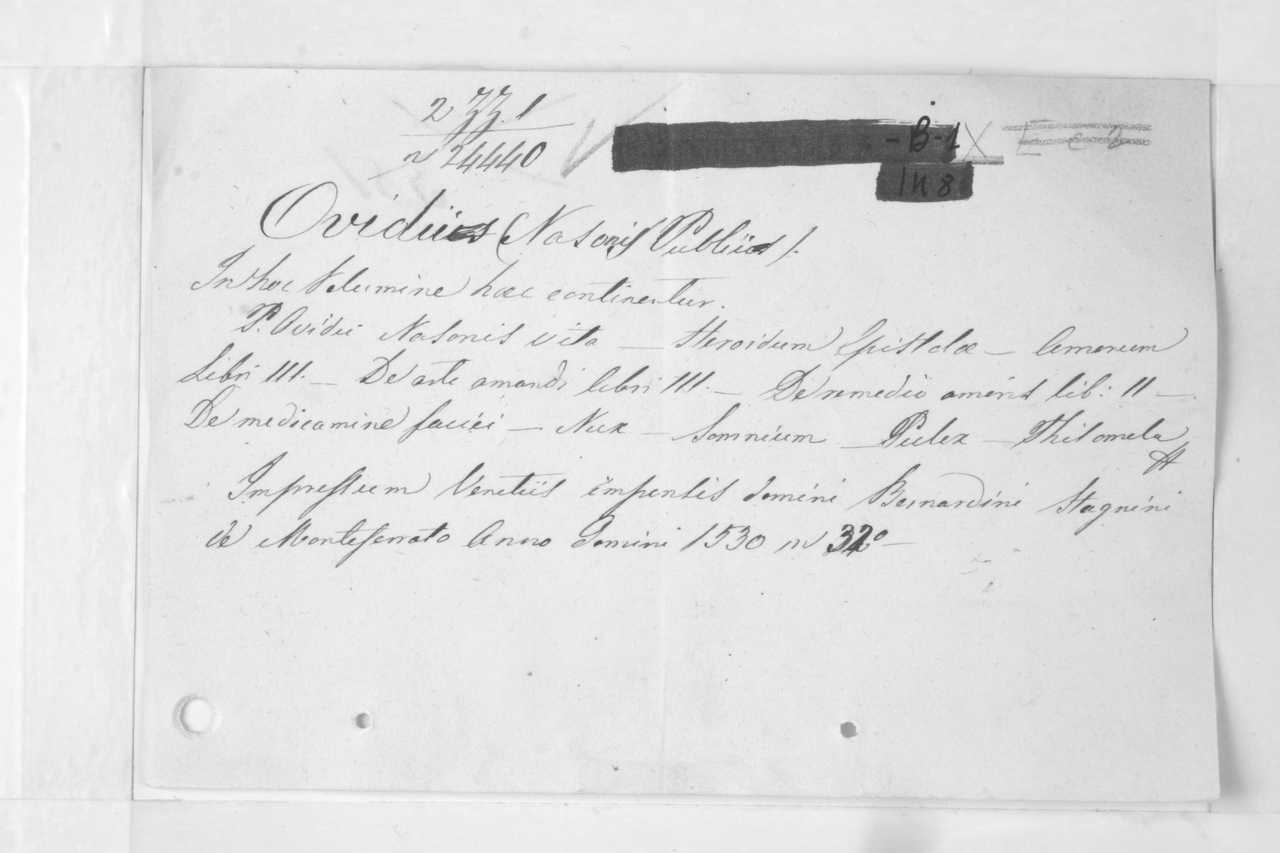 2 77.1
24440
- B - 1
IN 8
Ovidius (Nasonis Publius).
In hoc Volumine hæc continentur.
P. Ovidii Nasonis vita — Heroidum Epistolæ — Amorum
Libri III. — De arte amandi libri III. — De remedio amoris lib: II —
De medicamine faciei — Nux — Somnium — Pulex — Philomela
Impressum Venetiis impensis domini Bernardini Stagnini
de Monteferrato Anno Domini 1530 in 32º —